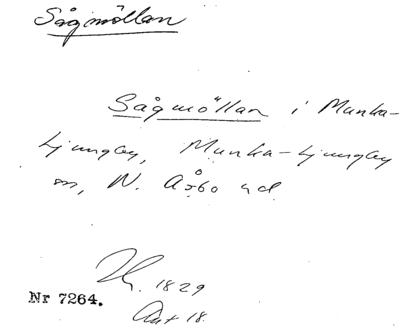 Sågmöllan
Sågmöllan i Munka-
Ljungby, Munka-Ljungby
sn, N. Åsbo hd
1829
Nr 7264.
Akt 18.